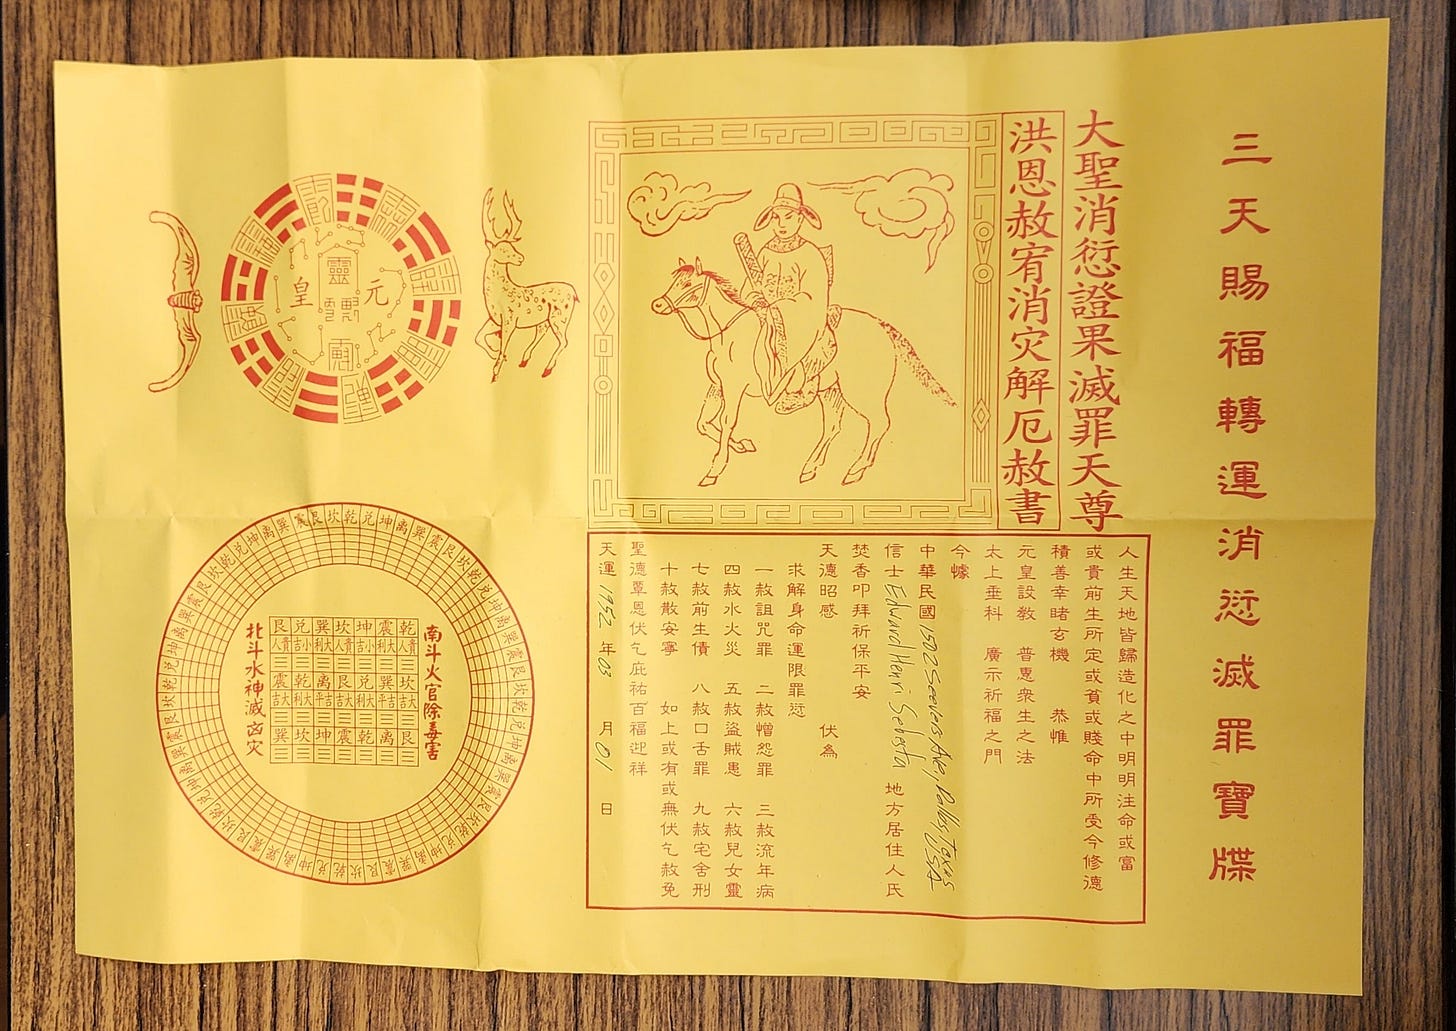 三天賜福轉運消愆滅罪寶牒
大聖消愆證果滅罪天尊
洪恩赦宥消灾解厄赦書
人生天地皆歸造化之中明明注命或富
或貴前生所定或貧或賤命中所受今修德
積善幸睹玄機 恭惟
元皇設教 普惠衆生之法
太上垂科 廣示祈福之門
今據
中華民國 1502 Seevers Ave, Dallas, Texas USA
信士 Edward Henri Sebesta 地方居住人民
焚香叩拜祈保平安
天德昭感 伏為
求解身命運限罪愆
一赦詛咒罪 二赦憎怨罪 三赦流年病
四赦水火災 五赦盜賊患 六赦兒女靈
七赦前生債 八赦口舌罪 九赦宅舍刑
十赦散安寧 如上或有或無伏乞赦免
聖德覃恩伏乞庇祐百福迎祥
天運 1952 年 03 月 01 日
元
皇
靈
南斗火官除毒害
乾震坤坎巽兌艮
坎巽兌艮離乾震
艮離乾震坤坎巽
北斗水神滅凶灾